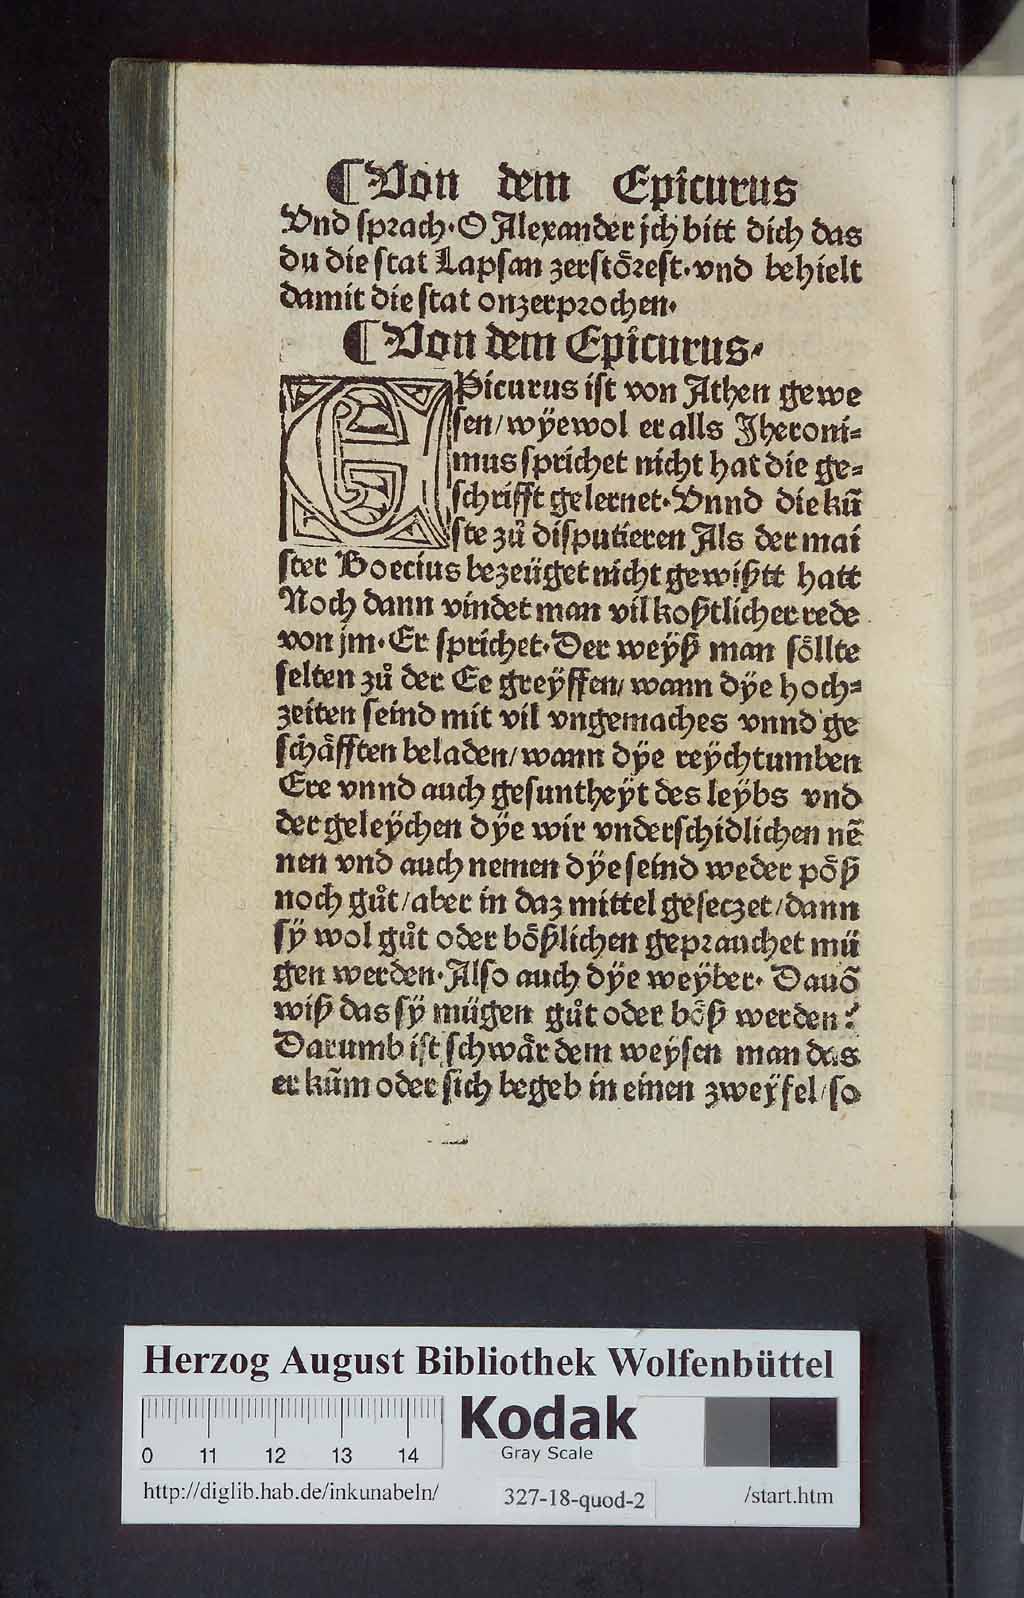 ¶ Von dem Epicurus
Vnd sprach· O Alexander jch bitt dich das
du die stat Lapsan zerstörest· vnd behielt
damit die stat onzerprochen·
¶ Von dem Epicurus·
EPicurus ist von Athen gewe
sen/ wÿewol er alls Jheroni⸗
mus sprichet nicht hat die ge⸗
schrifft gelernet· Vnnd die kū
ste zů disputieren Als der mai
ster Boecius bezeüget nicht gewißtt hatt
Noch dann vindet man vil koßtlicher rede
von jm· Er sprichet· Der weÿß man söllte
selten zů der Ee greÿffen/ wann dÿe hoch⸗
zeiten seind mit vil vngemaches vnnd ge
schäfften beladen/ wann dÿe reÿchtumben
Ere vnnd auch gesuntheÿt des leÿbs vnd
der geleÿchen dÿe wir vnderschidlichen nē
nen vnd auch nemen dÿe seind weder pöß
noch gůt/ aber in daz mittel gesetzet/ dann
sÿ wol gůt oder bößlichen geprauchet mü
gen werden· Also auch dÿe weÿber· Dauō
wiß das sÿ mügen gůt oder böß werden?
Darumb ist schwär dem weÿsen man das
er kūm oder sich begeb in einen zweÿfel/ so
Herzog August Bibliothek Wolfenbüttel
0 11 12 13 14
Kodak
Gray Scale
http://diglib.hab.de/inkunabeln/ 327-18-quod-2 /start.htm